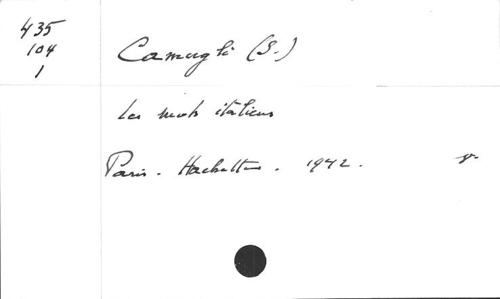 435
104
1
Camugli (S.)
Les mots italiens
Paris - Hachette - 1942.